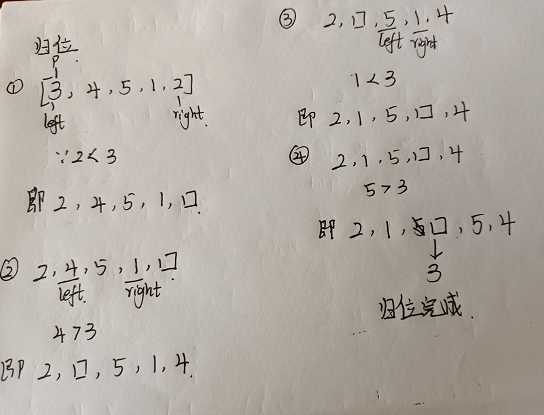 归位
P
① [3, 4, 5, 1, 2]
left right.
∵ 2 < 3
即 2, 4, 5, 1, 口
② 2, 4, 5, 1, 口
left. right
4 > 3
即 2, 口, 5, 1, 4.
③ 2, 口, 5, 1, 4
left right
1 < 3
即 2, 1, 5, 口, 4
④ 2, 1, 5, 口, 4
5 > 3
即 2, 1, 口, 5, 4
↓
3
归位完成.